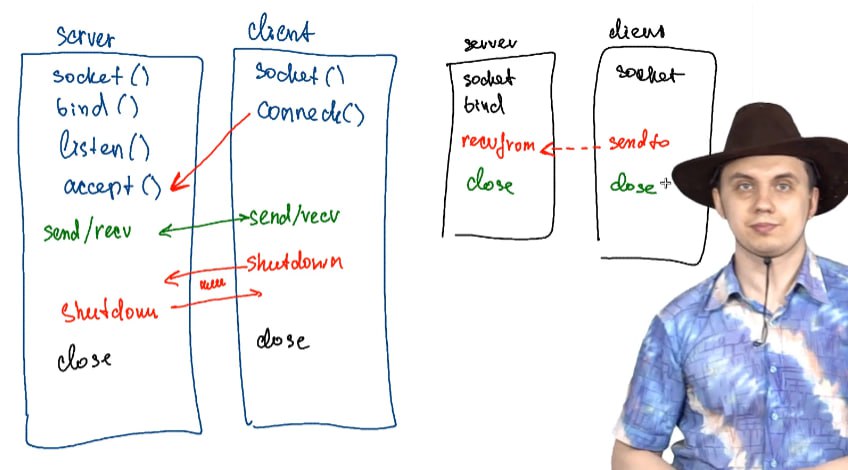 server
socket()
bind()
listen()
accept()
send/recv
shutdown
close
client
socket()
connect()
send/recv
shutdown
close
server
socket
bind
recvfrom
close
client
socket
sendto
close